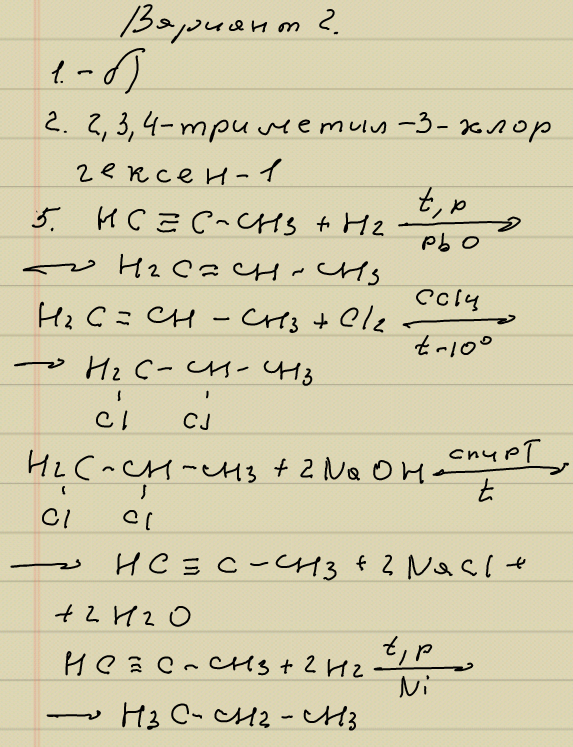 Вариант 2.
1. - б)
2. 2,3,4-триметил-3-хлор
гексен-1
5. HC ≡ C - CH3 + H2 t, p →
PbO
→ H2C = CH - CH3
H2C = CH - CH3 + Cl2 CCl4 →
t-10°
→ H2C - CH - CH3
Cl Cl
H2C - CH - CH3 + 2NaOH спирт →
Cl Cl t
→ HC ≡ C - CH3 + 2NaCl +
+ 2H2O
HC ≡ C - CH3 + 2H2 t, p →
Ni
→ H3C - CH2 - CH3